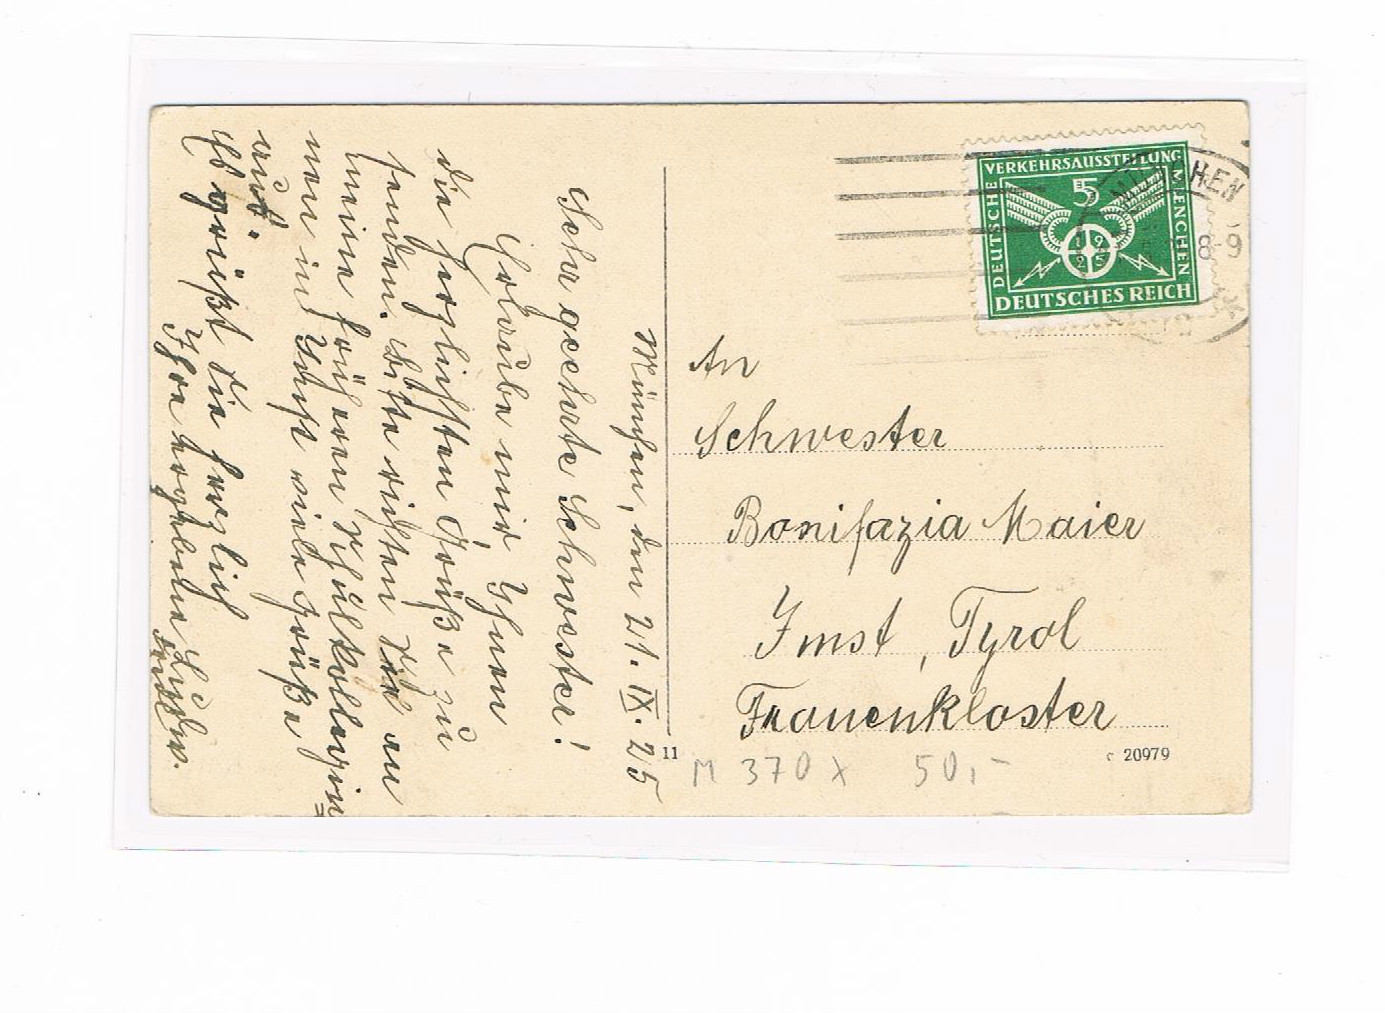 München, den 21. IX. 25
Sehr geehrte Schwester!
Erlaube mir Ihnen
die herzlichsten Grüße zu
senden. Bitte richten Sie an
meine früheren Schulkollegin=
nen in Imst viele Grüße
aus.
Es grüßt Sie herzlich
Ihre ergebene
An
Schwester
Bonifazia Maier
Imst, Tyrol
Frauenkloster
DEUTSCHE
VERKEHRSAUSSTELLUNG
MUENCHEN
5
1925
DEUTSCHES REICH
8-9
11
c 20979
M 370 x 50,-